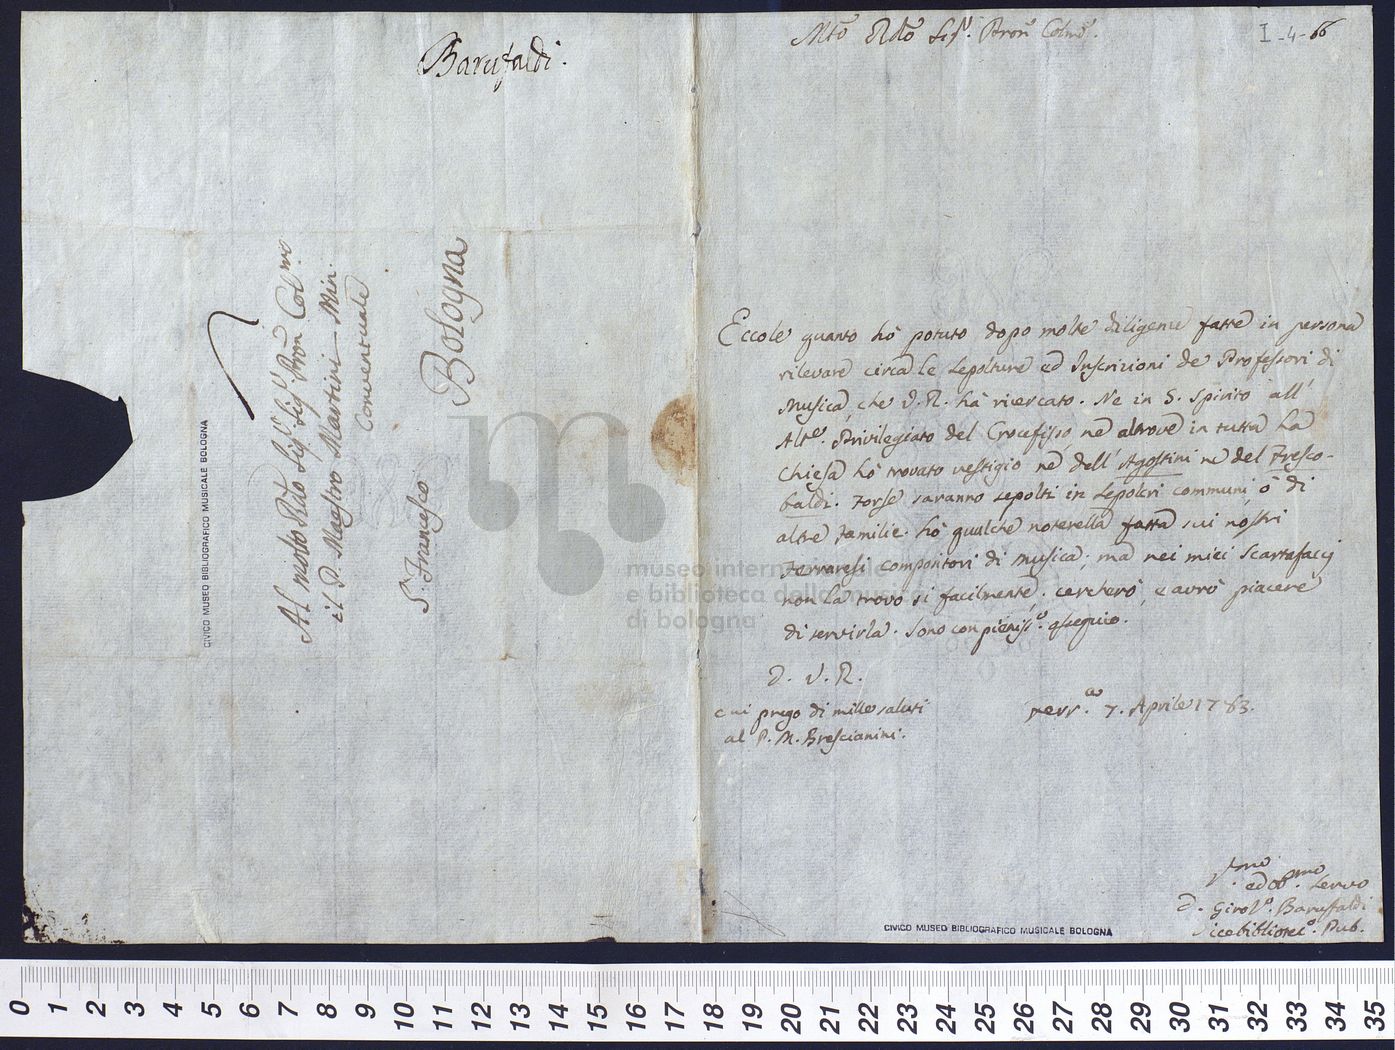 Barufaldi.
Al molto Rdo Sigr. Sigr. Pron Colmo.
il P. Maestro Martini — Min.
Conventuale
Bologna
S. Francesco
CIVICO MUSEO BIBLIOGRAFICO MUSICALE BOLOGNA
Mto Rdo Sigr. Pron Colmo.
I-4-66
Eccole quanto hò potuto dopo molte diligenze fatte in persona
rilevare circa le sepolture ed Inscrizioni de Professori di
Musica, che V. R. hà ricercato. Ne in S. Spirito all'
Alte. Privilegiato del Crocefisso nè altrove in tutta la
Chiesa hò trovato vestigio nè dell' Agostini nè del Fresco-
baldi. Forse saranno sepolti in sepolcri communi, ò di
altre famiglie. hò qualche noterella fatta sui nostri
Ferraresi compositori di musica; ma nei miei scartafacij
non la trovo sì facilmente; cercherò, e avrò piacere
di servirla. Sono con pieniss.o ossequio.
D. V. R.
cui prego di mille saluti
al P. M. Brescianini.
Ferr.a 7. Aprile 1783.
Vmo
ed obmo. servo
D. Girol.o Baruffaldi
Vicebibliotec.o Pub.
CIVICO MUSEO BIBLIOGRAFICO MUSICALE BOLOGNA
museo internazionale
e biblioteca della musica
di bologna
0 1 2 3 4 5 6 7 8 9 10 11 12 13 14 15 16 17 18 19 20 21 22 23 24 25 26 27 28 29 30 31 32 33 34 35